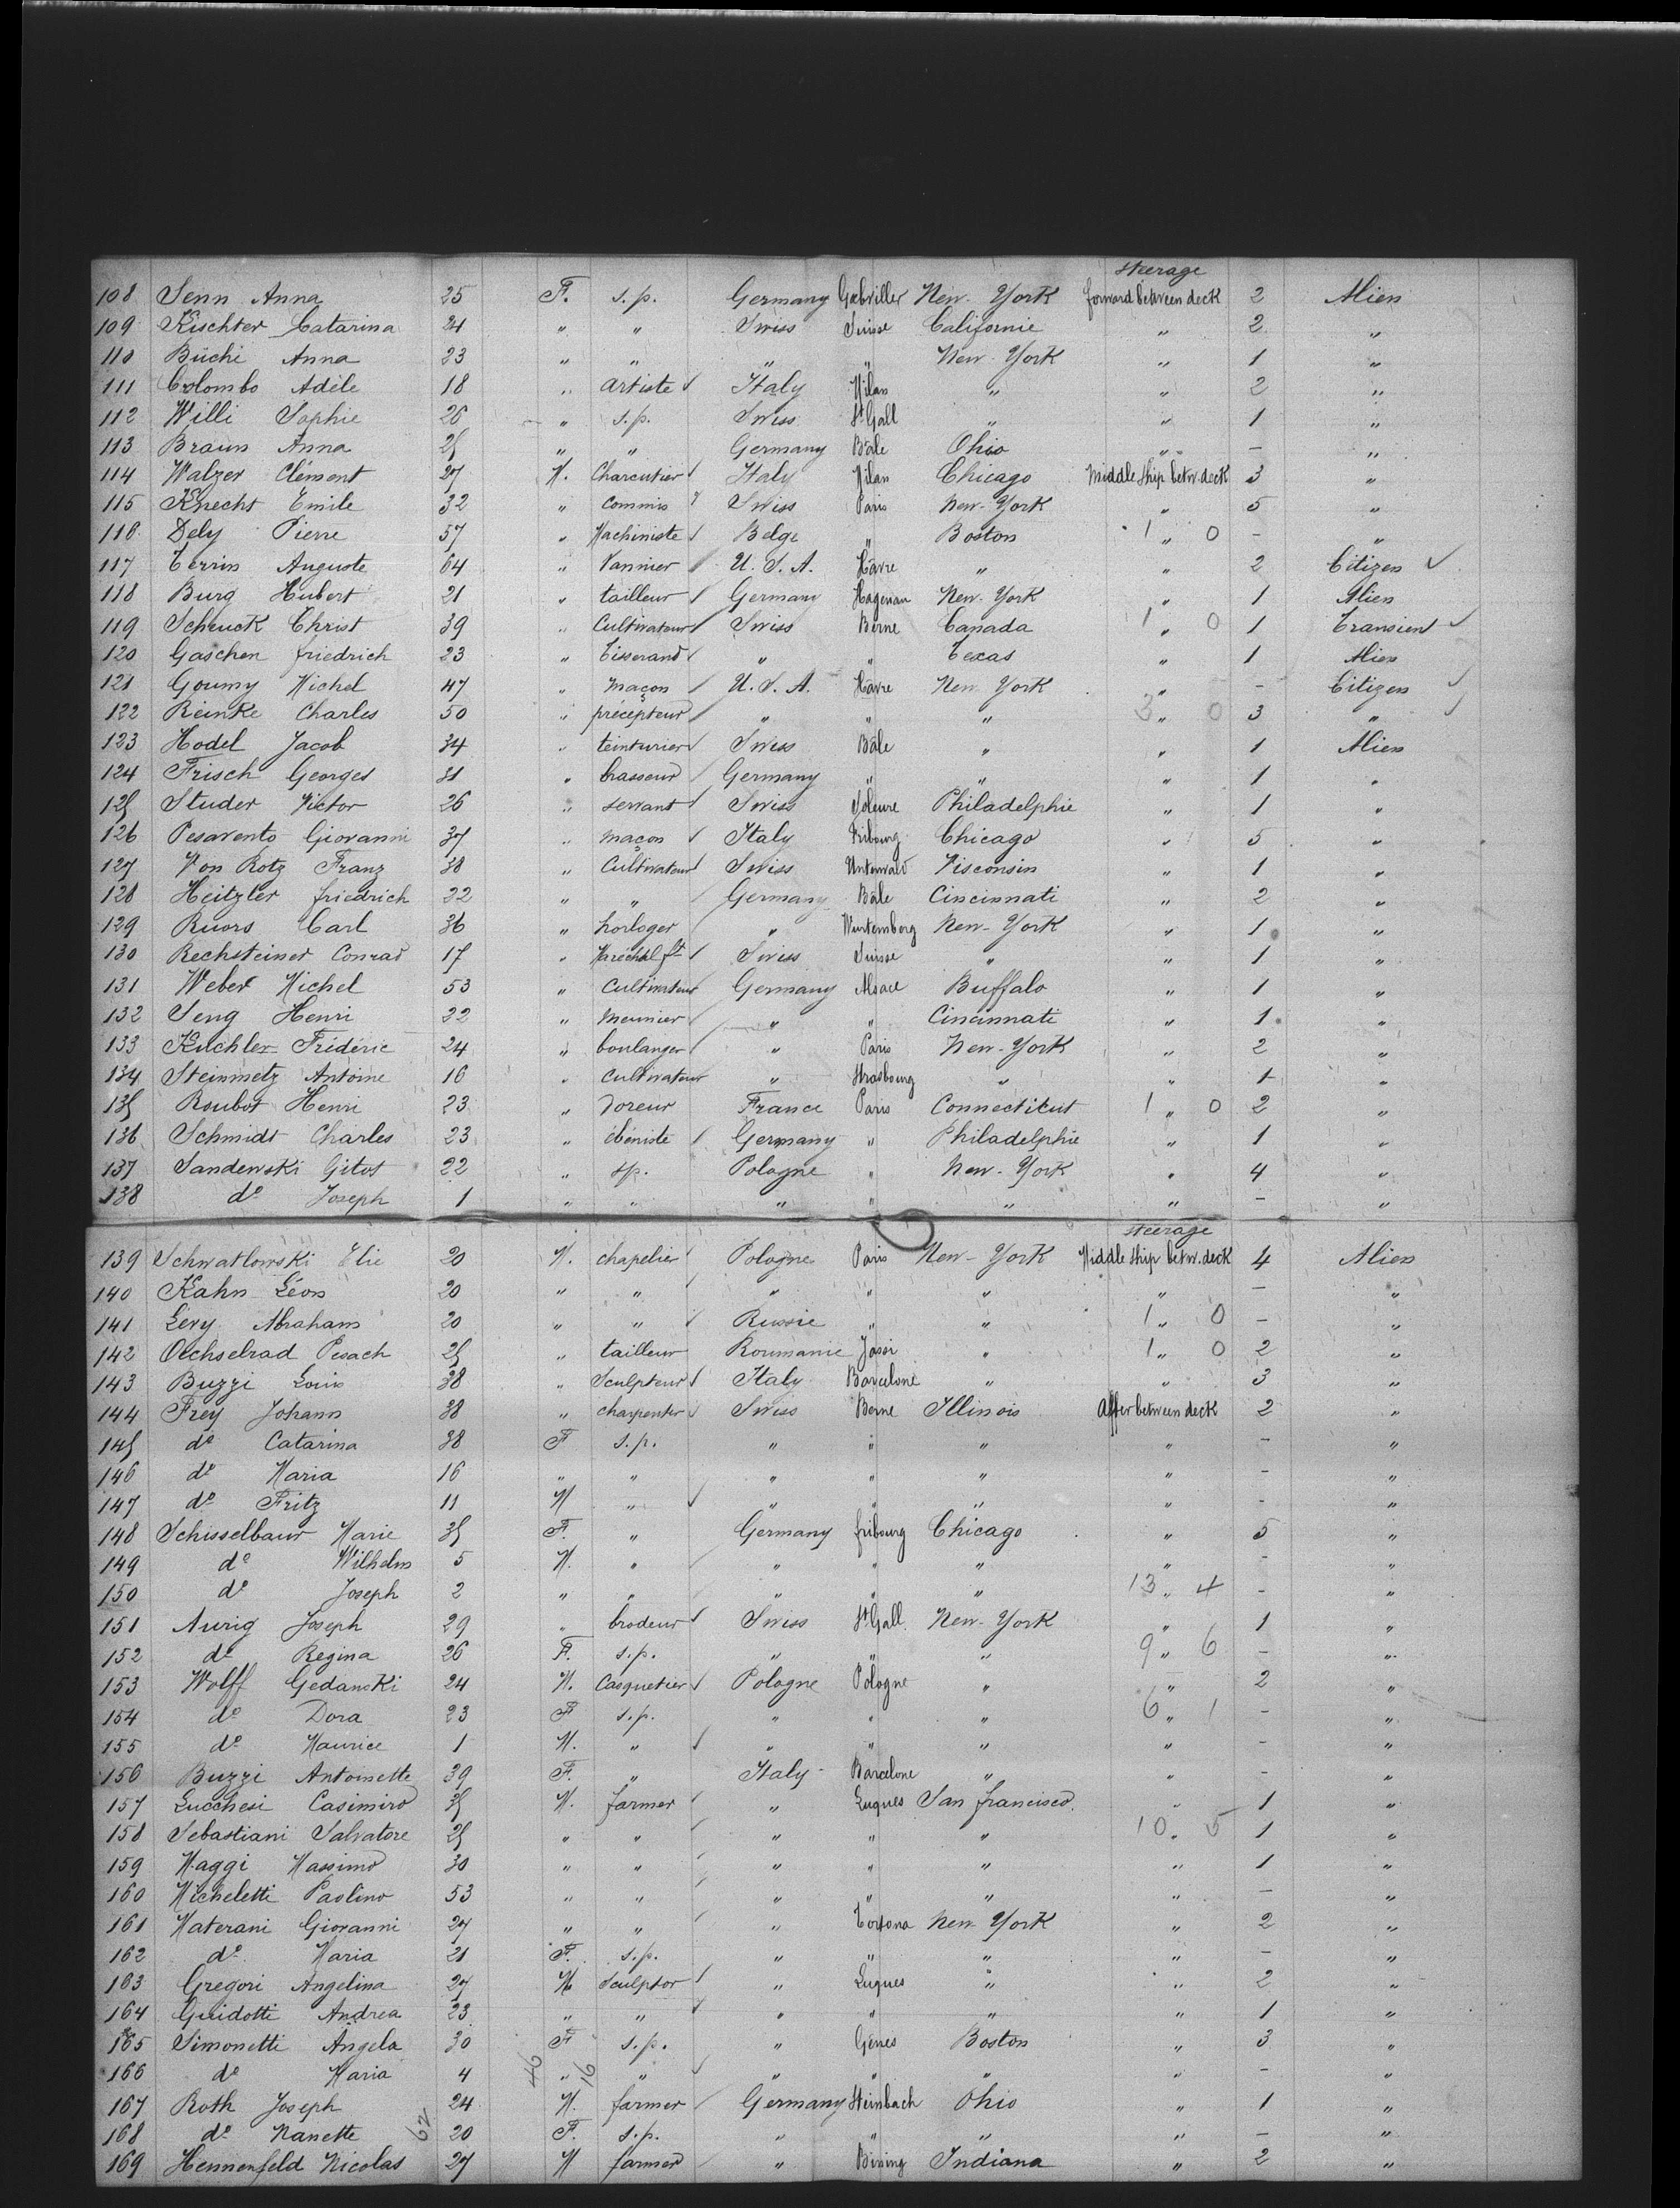 steerage
108 Senn Anna 25 F. s.p. Germany New-York forward between deck 2 Alien
109 Kischter Catarina 24 " " Swiss Suisse Californie " 2 "
110 Büchi Anna 23 " " " " New-York " 1 "
111 Colombo Adèle 18 " artiste Italy Milan " " 2 "
112 Willi Sophie 26 " s.p. Swiss St Gall " " 1 "
113 Braun Anna 25 " " Germany Bâle Ohio " - "
114 Walzer Clément 27 M. Charcutier Italy Milan Chicago Middle Ship betw. deck 3 "
115 Knecht Emile 32 " Commis Swiss Paris New-York " 5 "
116 Dely Pierre 57 " Machiniste Belge " Boston 1 " 0 - "
117 Terrin Auguste 64 " Vannier U.S.A. Hâvre " " 2 Citizen
118 Burg Hubert 21 " tailleur Germany Hagenau New-York " 1 Alien
119 Schuck Christ 39 " Cultivateur Swiss Berne Canada 1 " 0 1 Transient
120 Gaschen friedrich 23 " Tisserand " " Texas " 1 Alien
121 Goumy Michel 47 " Maçon U.S.A. Hâvre New York " - Citizen
122 Reinke Charles 50 " précepteur " " " 3 " 0 3 "
123 Hodel Jacob 34 " teinturier Swiss Bâle " " 1 Alien
124 Frisch Georges 31 " brasseur Germany " " " 1 "
125 Studer Victor 26 " servant Swiss Soleure Philadelphie " 1 "
126 Pesavento Giovanni 37 " maçon Italy Fribourg Chicago " 5 "
127 Von Rotz Franz 38 " Cultivateur Swiss Unterwald Visconsin " 1 "
128 Heitzler friedrich 22 " " Germany Bâle Cincinnati " 2 "
129 Ruors Carl 36 " horloger " Wurtemberg New-York " 1 "
130 Rechsteiner Conrad 17 " Maréchal ft Swiss Suisse " " 1 "
131 Weber Michel 53 " Cultivateur Germany Alsace Buffalo " 1 "
132 Seng Henri 22 " Meunier " " Cincinnati " 1 "
133 Kuchler Fréderic 24 " boulanger " Paris New-York " 2 "
134 Steinmetz Antoine 16 " Cultivateur " Strasbourg " " 1 "
135 Roubot Henri 23 " doreur France Paris Connecticut 1 " 0 2 "
136 Schmidt Charles 23 " ébéniste Germany " Philadelphie " 1 "
137 Sandewski Gitot 22 " sp. Pologne " New-York " 4 "
138 do Joseph 1 " " " " " " - "
steerage
139 Schwatlowski Elie 20 M. chapelier Pologne Paris New-York Middle ship betw. deck 4 Alien
140 Kahn Léon 20 " " " " " " - "
141 Levy Abraham 20 " " Russie " " 1 " 0 - "
142 Oechselrad Pesach 25 " tailleur Roumanie Jassi " 1 " 0 2 "
143 Buzzi Louis 38 " Sculpteur Italy Barcelone " " 3 "
144 Frey Johann 38 " charpentier Swiss Berne Illinois After between deck 2 "
145 do Catarina 38 F s.p. " " " " - "
146 do Maria 16 " " " " " " - "
147 do Fritz 11 M " " " " " - "
148 Schisselbaur Marie 35 F. " Germany fribourg Chicago " 5 "
149 do Wilhelm 5 M. " " " " " - "
150 do Joseph 2 " " " " " 13 " 4 - "
151 Aurig Joseph 29 " brodeur Swiss St Gall New-York " 1 "
152 do Regina 26 F. s.p. " " " 9 " 6 - "
153 Wolff Gedanski 24 M. Casquetier Pologne Pologne " " 2 "
154 do Dora 23 F s.p. " " " 6 " 1 - "
155 do Maurice 1 M. " " " " " - "
156 Buzzi Antoinette 39 F. " Italy Barcelone " " - "
157 Lucchesi Casimiro 35 M. farmer " Luques San francisco " 1 "
158 Sebastiani Salvatore 25 " " " " " 10 " 5 1 "
159 Maggi Massimo 30 " " " " " " 1 "
160 Micheletti Paolino 53 " " " " " " - "
161 Materani Giovanni 27 " " " Tortona New-York " 2 "
162 do Maria 21 F. s.p. " " " " - "
163 Gregori Angelina 27 M Sculptor " Luques " " 2 "
164 Guidotti Andrea 23 " " " " " " 1 "
165 Simonetti Angela 30 F s.p. " Gênes Boston " 3 "
166 do Maria 4 " " " " " " - "
46 16
167 Roth Joseph 24 M. farmer Germany Steinbach Ohio " 1 "
168 do Nanette 62 20 F. s.p. " " " " - "
169 Hennenfeld Nicolas 27 M farmer " Indiana " 2 "